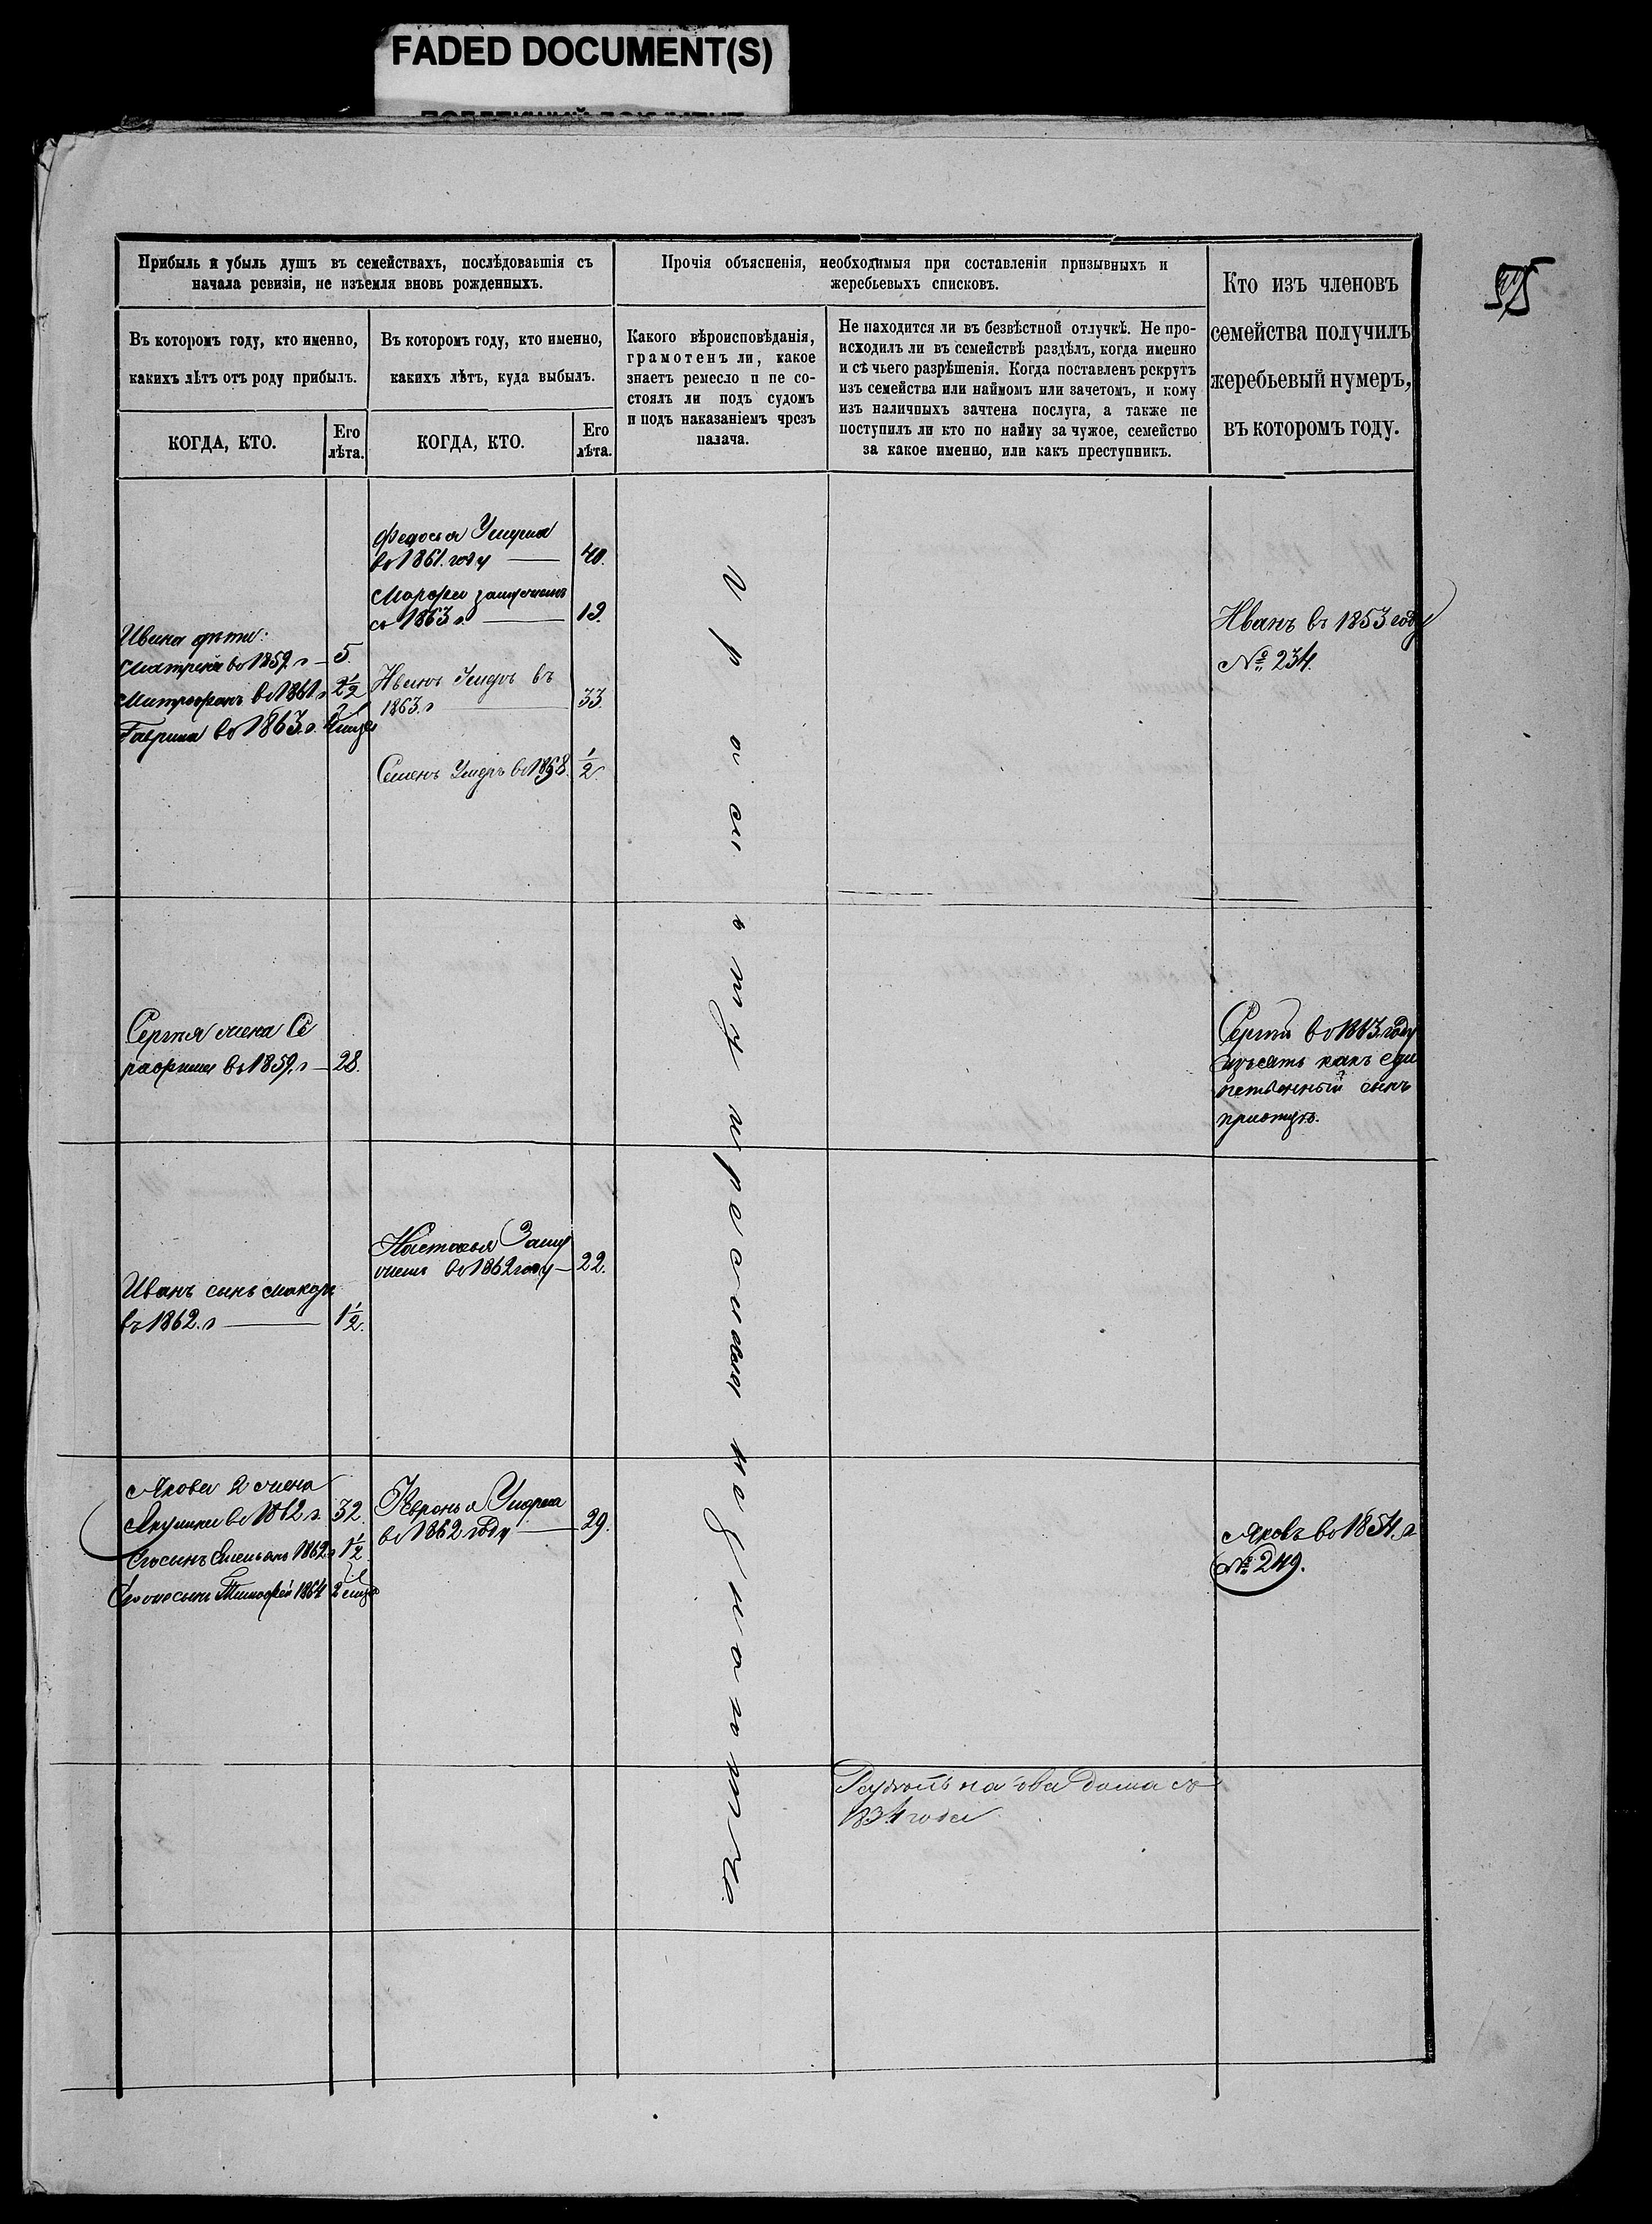 FADED DOCUMENT(S)
Прибыль и убыль душъ въ семействахъ, послѣдовавшія съ
начала ревизіи, не изъемля вновь рожденныхъ.
Въ которомъ году, кто именно,
какихъ лѣтъ отъ роду прибылъ.
КОГДА, КТО.
Его
лѣта.
Въ которомъ году, кто именно,
какихъ лѣтъ, куда выбылъ.
КОГДА, КТО.
Его
лѣта.
Прочія объясненія, необходимыя при составленіи призывныхъ и
жеребьевыхъ списковъ.
Какого вѣроисповѣданія,
грамотенъ ли, какое
знаетъ ремесло и не со-
стоялъ ли подъ судомъ
и подъ наказаніемъ чрезъ
палача.
Не находится ли въ безвѣстной отлучкѣ. Не про-
исходилъ ли въ семействѣ раздѣлъ, когда именно
и съ чьего разрѣшенія. Когда поставленъ рекрутъ
изъ семейства или наймомъ или зачетомъ, и кому
изъ наличныхъ зачтена послуга, а также не
поступилъ ли кто по найму за чужое, семейство
за какое именно, или какъ преступникъ.
Кто изъ членовъ
семейства получилъ
жеребьевый нумеръ,
въ которомъ году.
Федосья Умерла
во 1861. году 40.
Марфа замужемъ
съ 1863 г. 19.
Ивана дѣти:
Матрена во 1859 г 5.
Митрофанъ во 1861 г 2½
Гаврила во 1863. г.
Иванъ Умеръ въ
1863. г 33.
Семенъ Умеръ во 1858. ½.
Иванъ въ 1853 году
№ 234.
Сергѣя жена Се
рафима во 1859. г 28.
Сергѣй во 1863. году
изъятъ какъ един
ственный сынъ
при отцѣ.
Настасья Заму
жемъ во 1862 году 22.
Иванъ сынъ
въ 1862. г 1½.
Якова 2 жена
Акулина во 1862 г. 32.
Его сынъ Емельянъ 1862 г 1½
Его же сынъ Тимофей 1864 2 мѣс
Февронья Умерла
во 1862 году 29.
Яковъ во 1854. г
№ 249.
православнаго
Раздѣлъ на два дома съ
1834 года